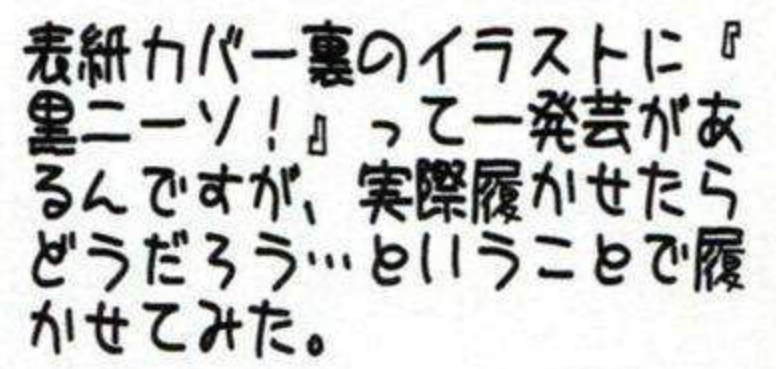 表紙カバー裏のイラストに『
黒ニーソ！』って一発芸があ
るんですが、実際履かせたら
どうだろう…ということで履
かせてみた。